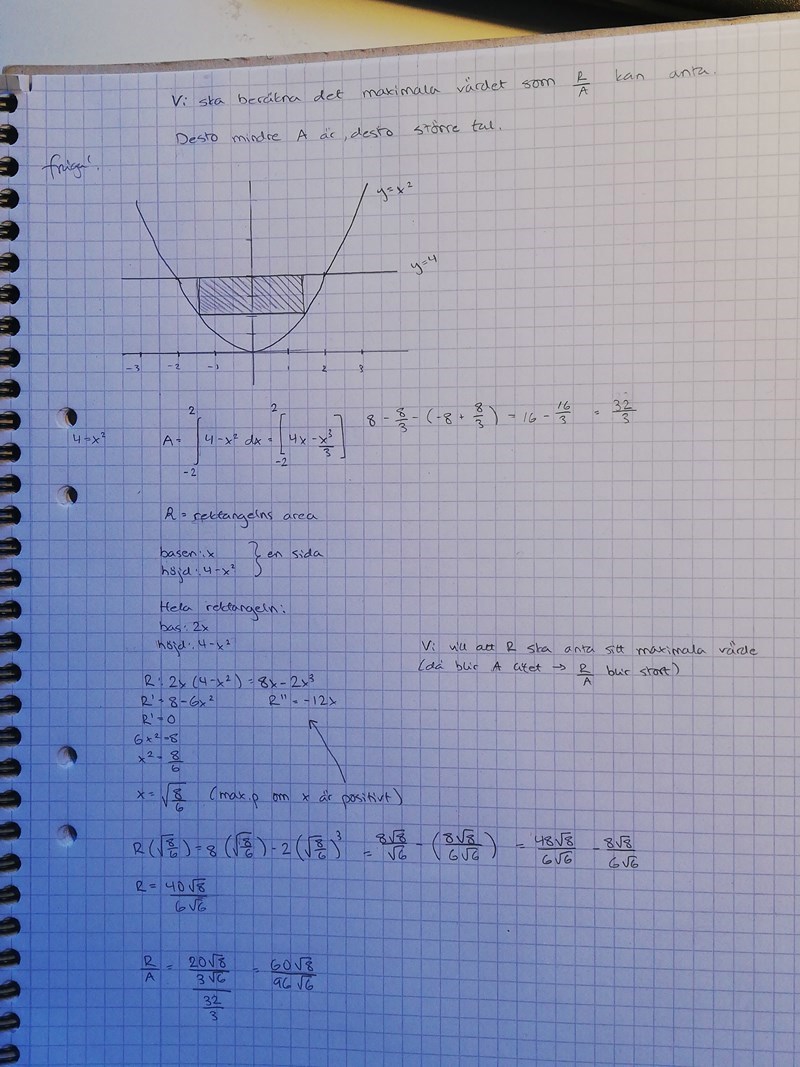 Vi ska beräkna det maximala värdet som R/A kan anta.
Desto mindre A är, desto större tal.
fråga!
y=x²
y=4
-3 -2 -1 1 2 3
4=x² A= ∫_{-2}^{2} 4-x² dx = [4x-x³/3]_{-2}^{2} 8 - 8/3 - (-8 + 8/3) = 16 - 16/3 = 32/3
R = rektangelns area
basen: x } en sida
höjd: 4-x²
Hela rektangeln:
bas: 2x
höjd: 4-x²
Vi vill att R ska anta sitt maximala värde
(då blir A litet → R/A blir stort)
R: 2x(4-x²) = 8x-2x³
R' = 8-6x² R'' = -12x
R' = 0
6x² = 8
x² = 8/6
x = √(8/6) (max.p om x är positivt)
R(√(8/6)) = 8(√(8/6)) - 2(√(8/6))³ = 8√8/√6 - (8√8/6√6) = 48√8/6√6 - 8√8/6√6
R = 40√8/6√6
R/A = (20√8/3√6)/(32/3) = 60√8/96√6